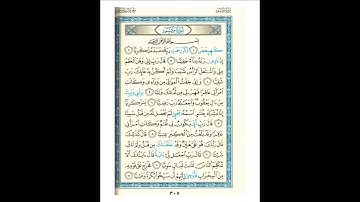 بِسْمِ اللَّهِ الرَّحْمَٰنِ الرَّحِيمِ
كهيعص ١ ذِكْرُ رَحْمَتِ رَبِّكَ عَبْدَهُ زَكَرِيَّا ٢
إِذْ نَادَىٰ رَبَّهُ نِدَاءً خَفِيًّا ٣ قَالَ رَبِّ إِنِّي وَهَنَ الْعَظْمُ
مِنِّي وَاشْتَعَلَ الرَّأْسُ شَيْبًا وَلَمْ أَكُنْ بِدُعَائِكَ رَبِّ
شَقِيًّا ٤ وَإِنِّي خِفْتُ الْمَوَالِيَ مِنْ وَرَائِي وَكَانَتِ
امْرَأَتِي عَاقِرًا فَهَبْ لِي مِنْ لَدُنْكَ وَلِيًّا ٥ يَرِثُنِي وَيَرِثُ
مِنْ آلِ يَعْقُوبَ وَاجْعَلْهُ رَبِّ رَضِيًّا ٦ يَا زَكَرِيَّا
إِنَّا نُبَشِّرُكَ بِغُلَامٍ اسْمُهُ يَحْيَىٰ لَمْ نَجْعَلْ لَهُ مِنْ قَبْلُ سَمِيًّا
٧ قَالَ رَبِّ أَنَّىٰ يَكُونُ لِي غُلَامٌ وَكَانَتِ امْرَأَتِي
عَاقِرًا وَقَدْ بَلَغْتُ مِنَ الْكِبَرِ عِتِيًّا ٨ قَالَ كَذَٰلِكَ
قَالَ رَبُّكَ هُوَ عَلَيَّ هَيِّنٌ وَقَدْ خَلَقْتُكَ مِنْ قَبْلُ وَلَمْ تَكُ
شَيْئًا ٩ قَالَ رَبِّ اجْعَلْ لِي آيَةً قَالَ آيَتُكَ أَلَّا
تُكَلِّمَ النَّاسَ ثَلَاثَ لَيَالٍ سَوِيًّا ١٠ فَخَرَجَ عَلَىٰ قَوْمِهِ
مِنَ الْمِحْرَابِ فَأَوْحَىٰ إِلَيْهِمْ أَنْ سَبِّحُوا بُكْرَةً وَعَشِيًّا ١١
٣٠٥